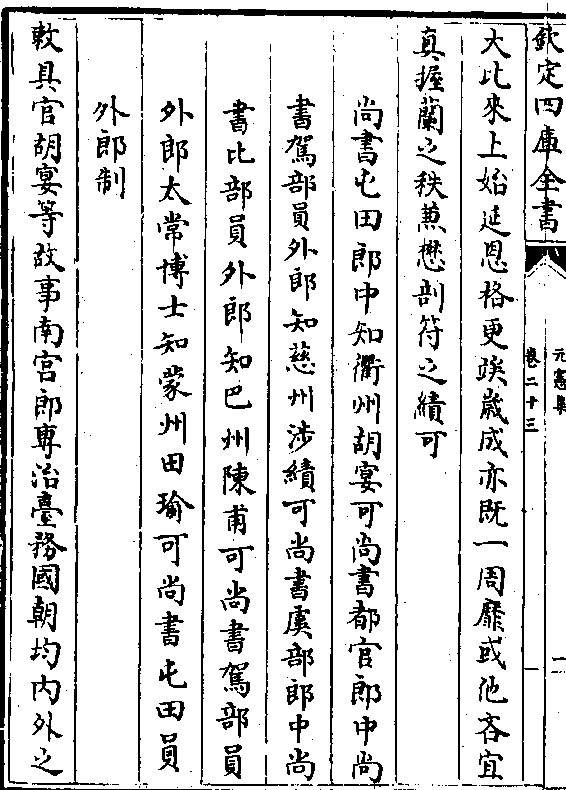 欽定四庫全書
元憲集
卷二十三
大比來上始延恩格更俟歲成亦既一周靡或他吝宜
真握蘭之秩兼懋剖符之績可
尚書屯田郎中知衢州胡宴可尚書都官郎中尚
書駕部員外郎知慈州涉績可尚書虞部郎中尚
書比部員外郎知巴州陳甫可尚書駕部員
外郎太常博士知蒙州田瑜可尚書屯田員
外郎制
敕具官胡宴等故事南宮郎專治臺務國朝均内外之